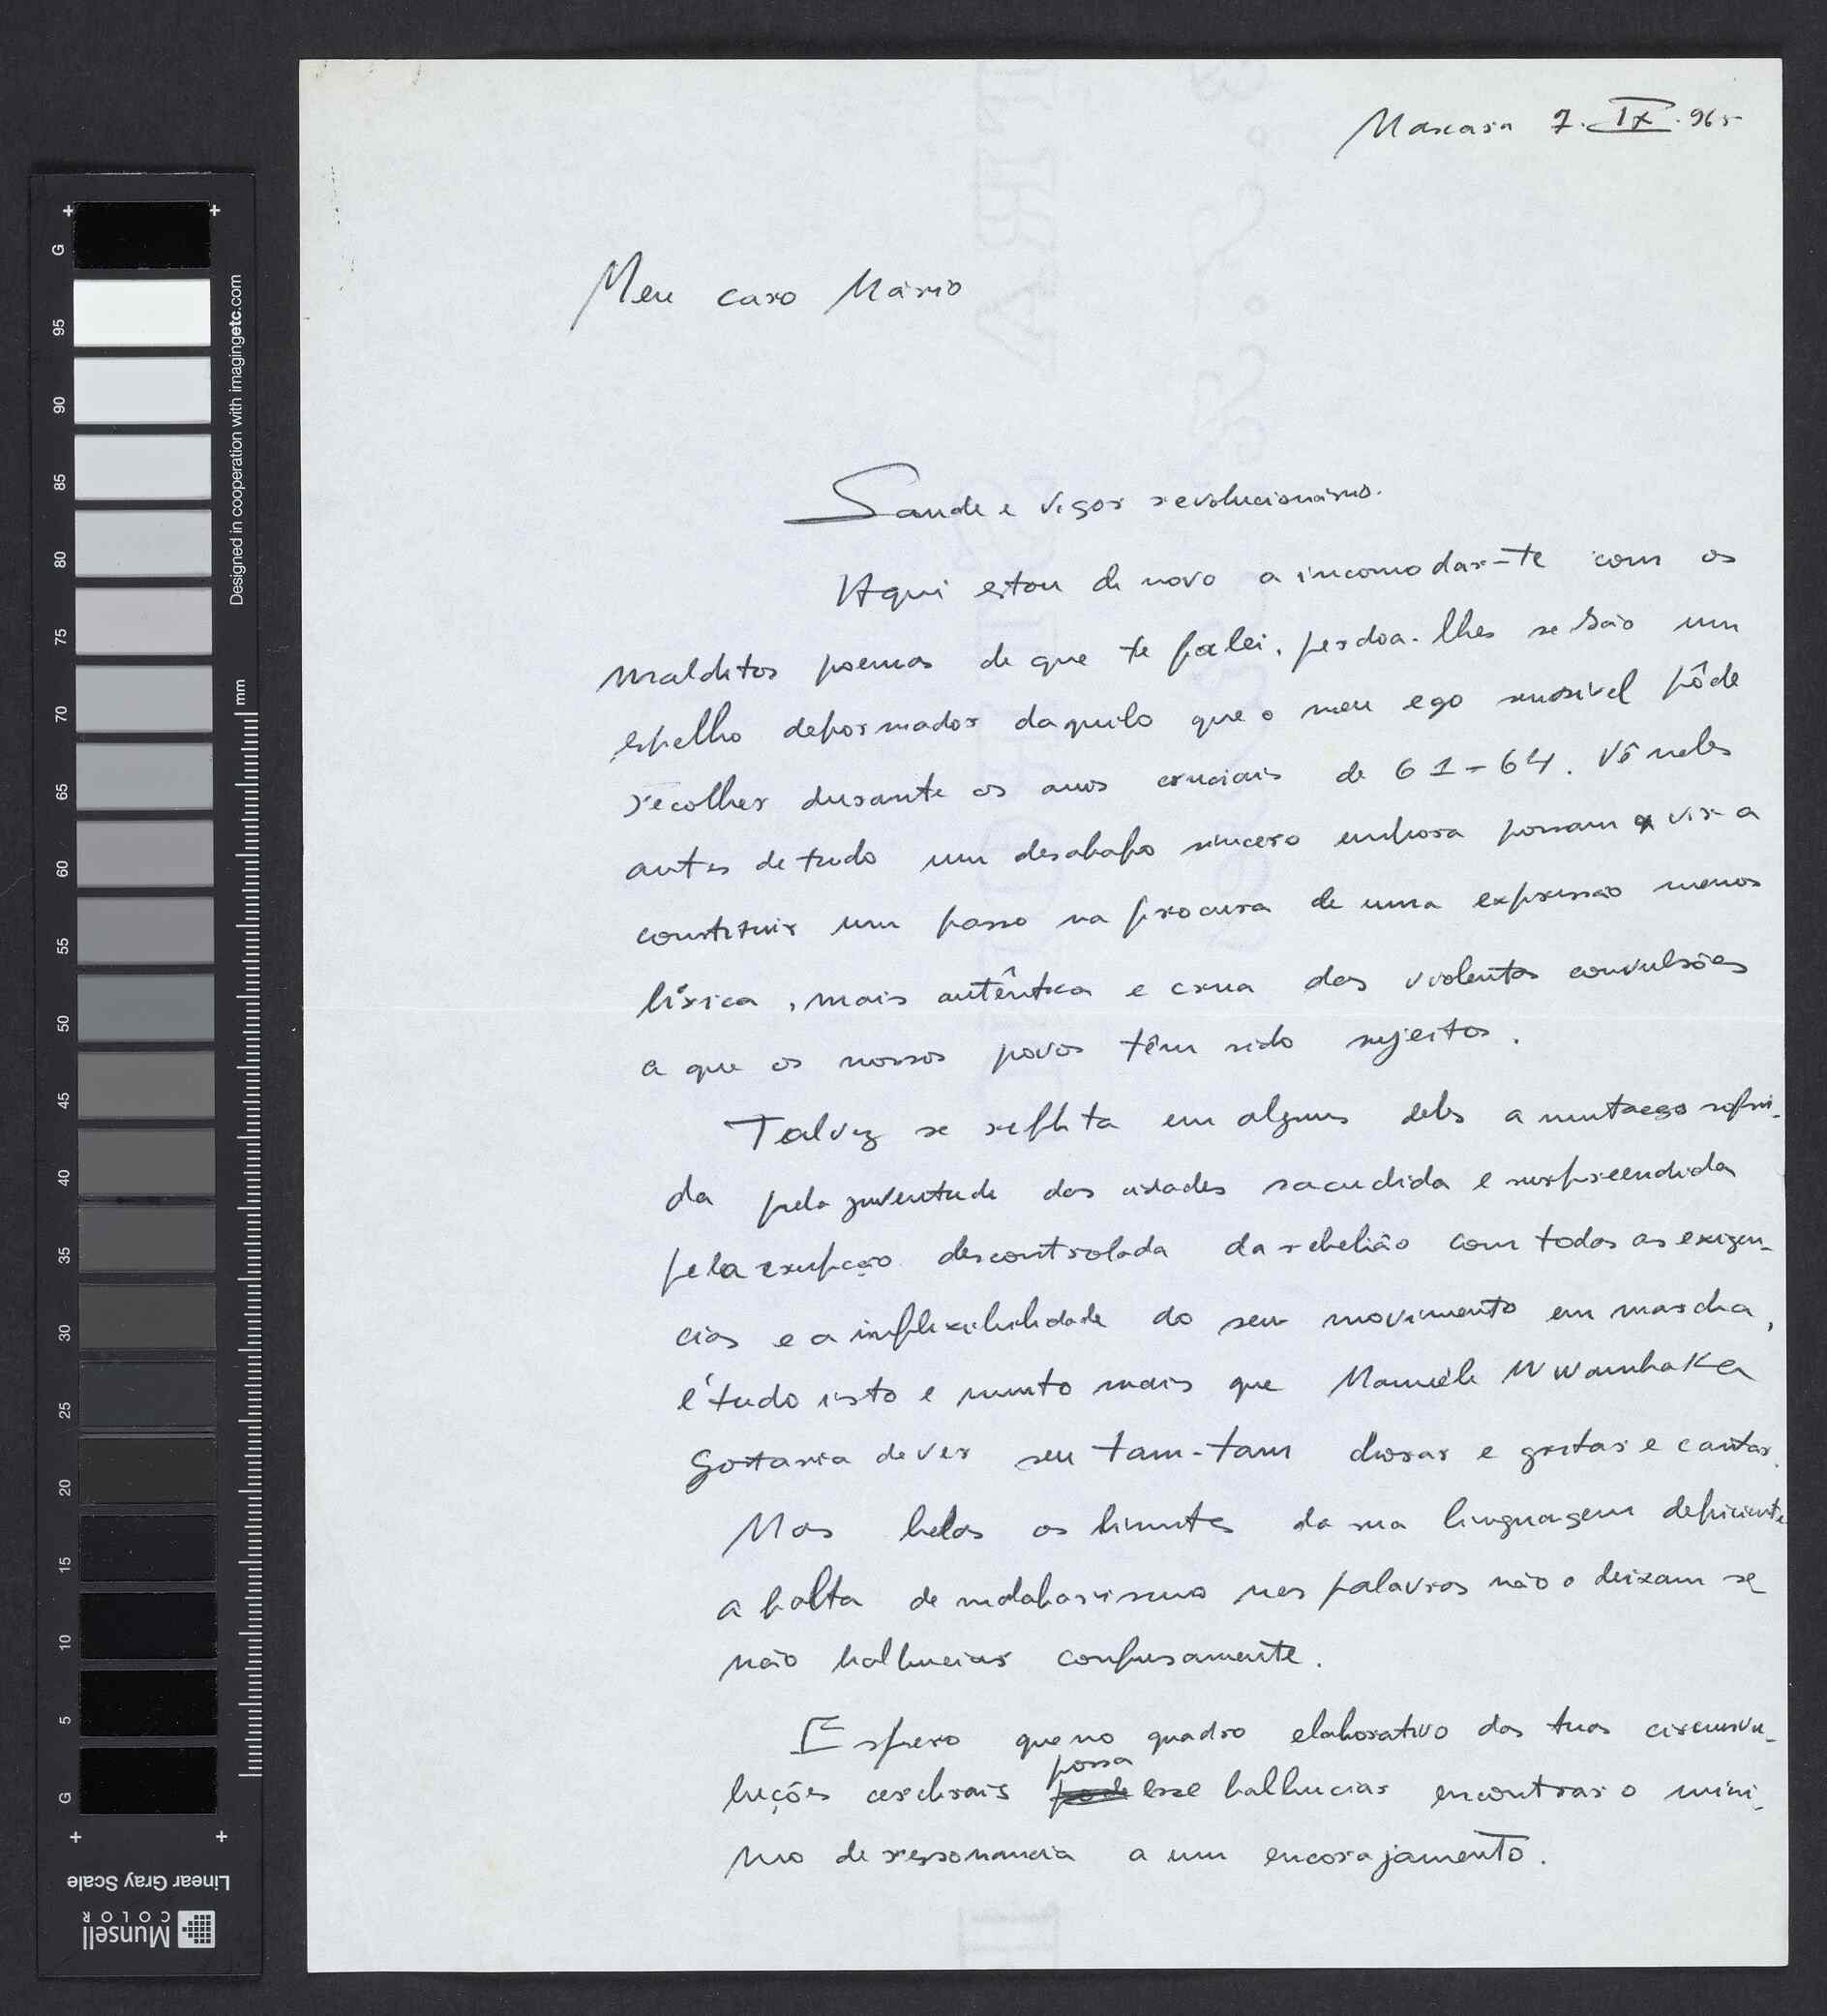 Mascara 7. IX. 965
Meu caro Mário
Saude e vigor revolucionário.
Aqui estou de novo a incomodar-te com os
malditos poemas de que te falei, perdoa-lhes se são um
espelho deformador daquilo que o meu ego sensível pôde
recolher durante os anos cruciais de 61-64. Vê neles
antes de tudo um desabafo sincero embora possam vir a
constituir um passo na procura de uma expressão menos
lírica, mais autêntica e crua das violentas convulsões
a que os nossos povos têm sido sujeitos.
Talvez se reflita em alguns deles a mutação sofri-
da pela juventude das cidades sacudida e surpreendida
pela erupção descontrolada da rebelião com todas as exigen-
cias e a inflexibilidade do seu movimento em marcha,
é tudo isto e muito mais que
gostaria de ver seu tam-tam chorar e gritar e cantar.
Mas helas os limites da sua linguagem deficiente
a falta de malabarismo nas palavras não o deixam se
não balbuciar confusamente.
Espero que no quadro elaborativo das tuas circunvu-
luções cerebrais possa esse balbuciar encontrar o míni-
mo de ressonancia a um encorajamento.
G 95 90 85 80 75 70 65 60 55 50 45 40 35 30 25 20 15 10 5 G
mm
Designed in cooperation with imagingetc.com
Linear Gray Scale
Munsell
COLOR